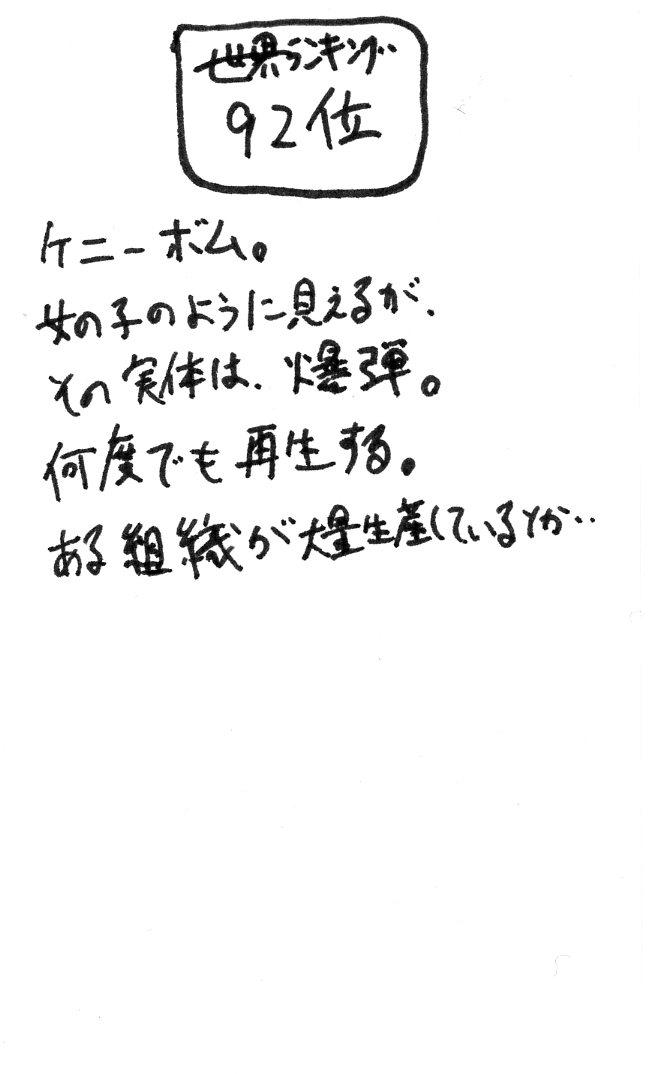 世界ランキング
92位
ケニーボム。
女の子のように見えるが、
その実体は、爆弾。
何度でも再生する。
ある組織が大量生産しているとか‥